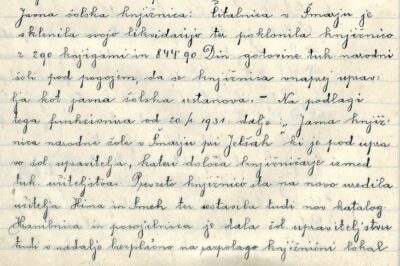 Javna šolska knjižnica: Čitalnica v Šmarju je
sklenila svojo likvidacijo ter poklonila knjižnico
z 290 knjigami in 844·90 Din gotovine tuk. narodni
šoli pod pogojem, da se knjižnica vnaprej uprav-
lja kot javna šolska ustanova. - Na podlagi
tega funkcionira od 20./1. 1931. dalje „Javna knjiž-
nica narodne šole v Šmarju pri Jelšah" ki je pod upra-
vo šol. upravitelja, kateri določa knjižničarje izmed
tuk. učiteljstva. Prevzeto knjižnico sta na novo uredila
učitelja Hina in Smeh ter sestavila tudi nov katalog.
Hranilnica in posojilnica je dala šol. upraviteljstvu
tudi v nadalje brezplačno na razpolago knjižnični lokal